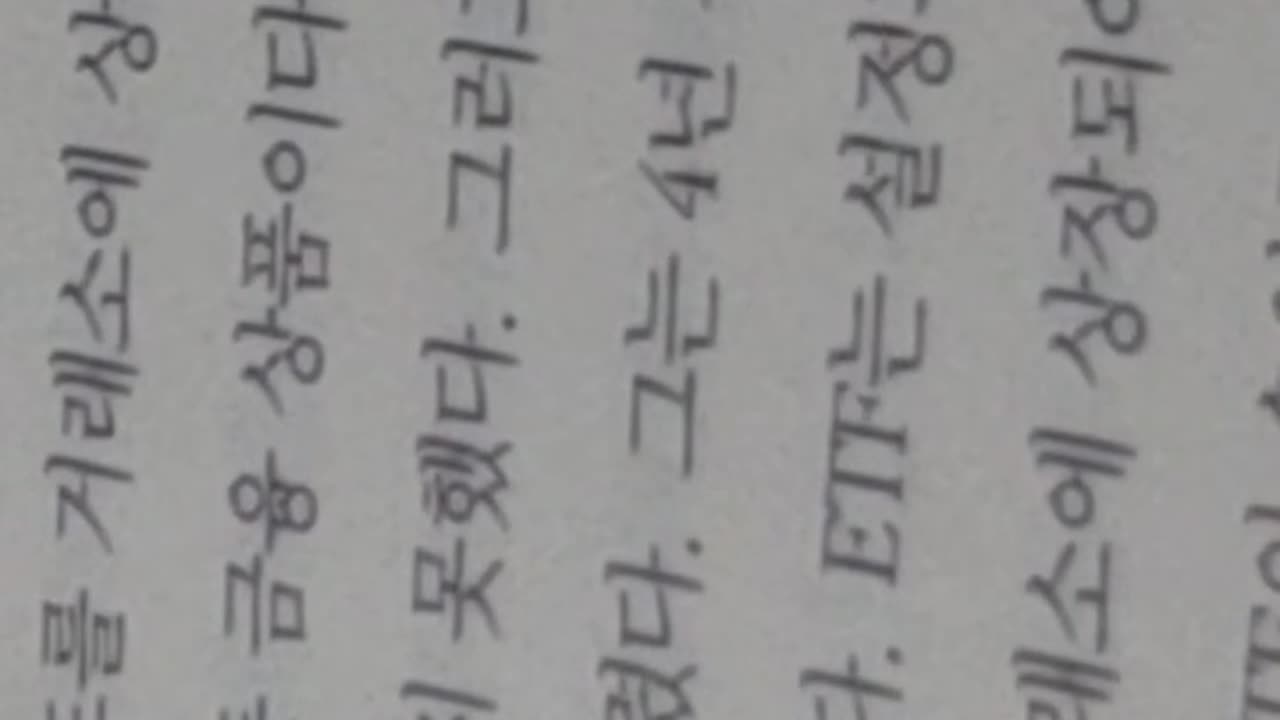 를 거래소에 상
금융 상품이다
못했다. 그러
다. 그는 4년
다. ETF는 설정
래소에 상장되어